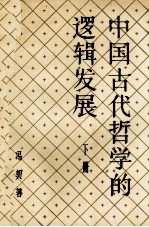 中国古代哲学的
逻辑发展
下册
冯契著